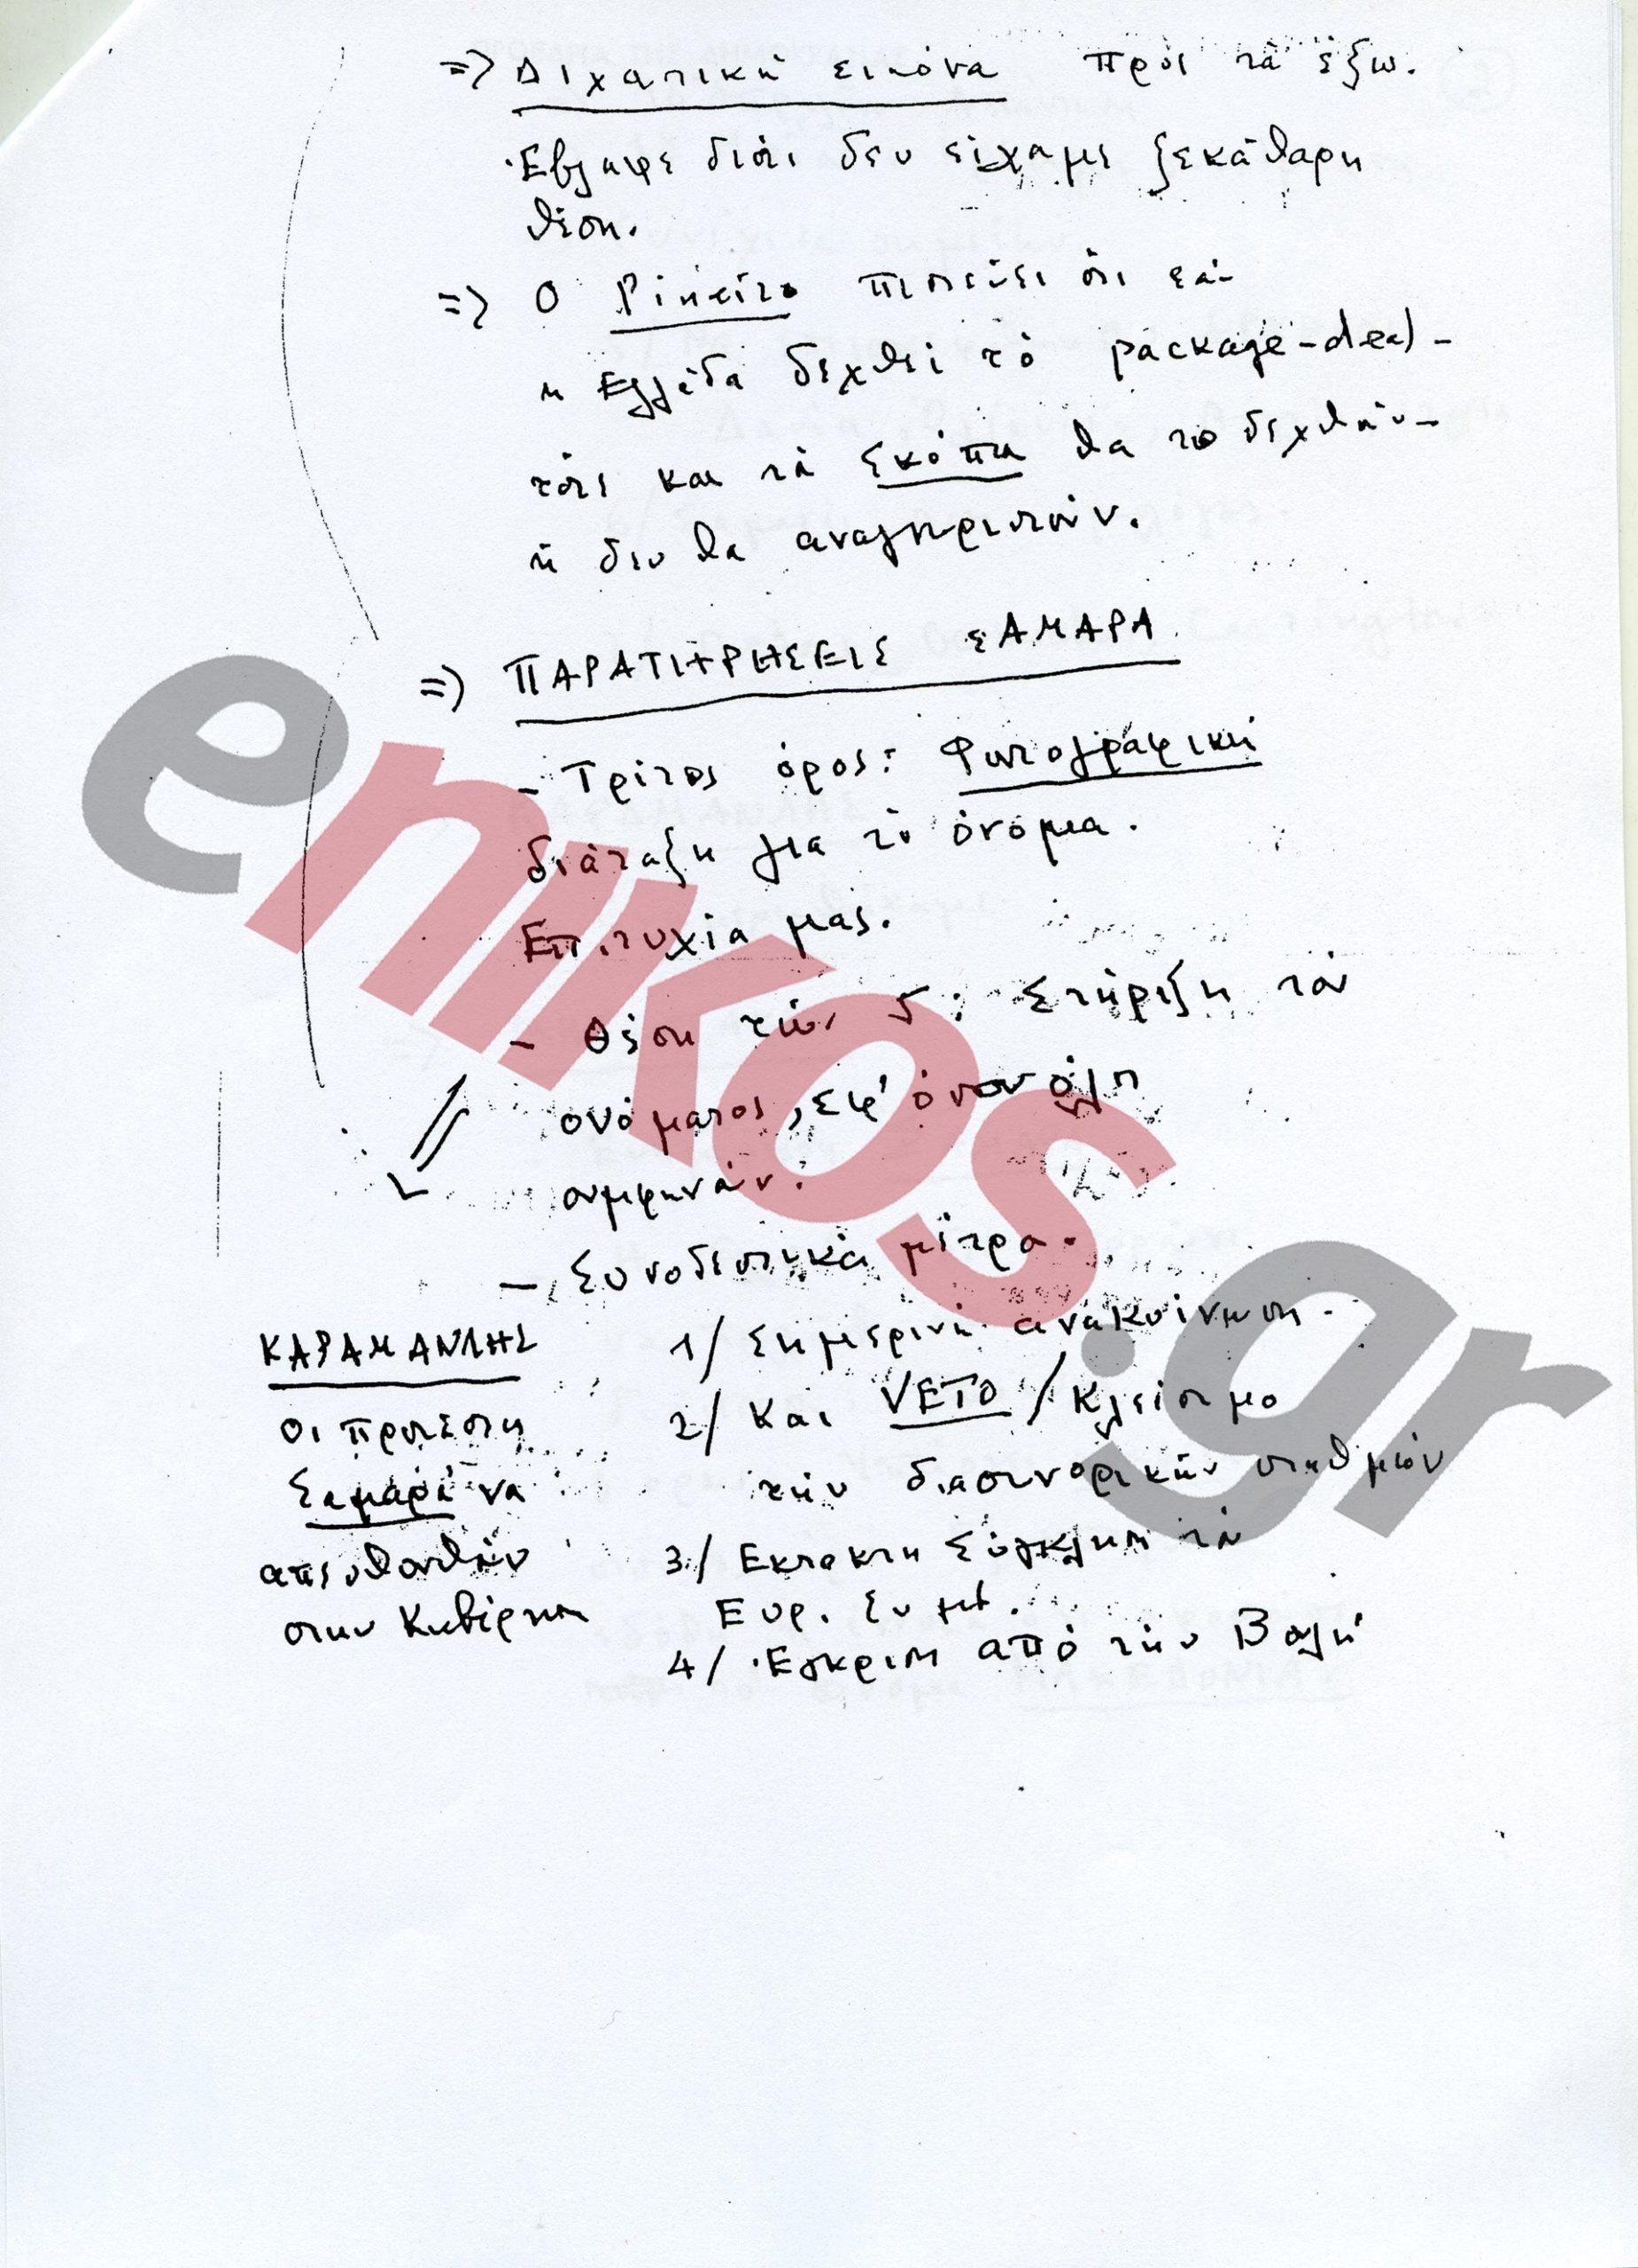 => Διχαστική εικόνα πρός τά έξω.
Έβλαψε διότι δεν είχαμε ξεκάθαρη
θέση.
=> Ο Pinheiro πιστεύει ότι εάν
η Ελλάδα δεχθεί τό package-deal -
τότε και τά Σκόπια θα το δεχθούν -
ή δεν θα αναγνωριστούν.
=> ΠΑΡΑΤΗΡΗΣΕΙΣ ΣΑΜΑΡΑ
- Τρίτος όρος: Φωτογραφική
διάταξη για τό όνομα.
Επιτυχία μας.
- Θέση των 5: Στήριξη τού
ονόματος, εφ' όσον όλοι
συμφωνούν.
- Συνοδευτικά μέτρα.
1/ Σημερινή ανακοίνωση.
2/ Και VETO / Κλείσιμο
τών διασυνοριακών σταθμών
3/ Εκτακτη Σύγκληση τού
Ευρ. Συμβ.
4/ Έγκριση από τήν Βουλή
ΚΑΡΑΜΑΝΛΗΣ
Οι προτάσεις
Σαμαρά να
απευθυνθούν
στην Κυβέρνηση
enikos.gr